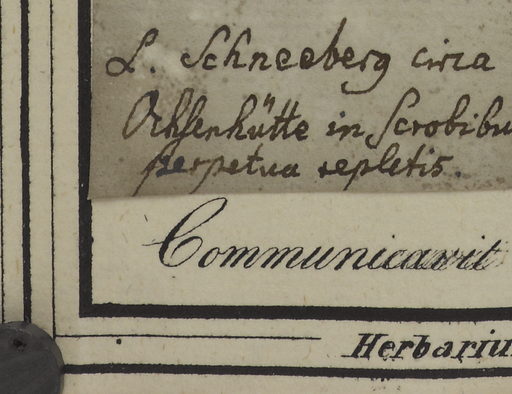 L. Schneeberg circa
Ochsenhütte in Scrobibu
perpetua repletis.
Communicavit
Herbariu